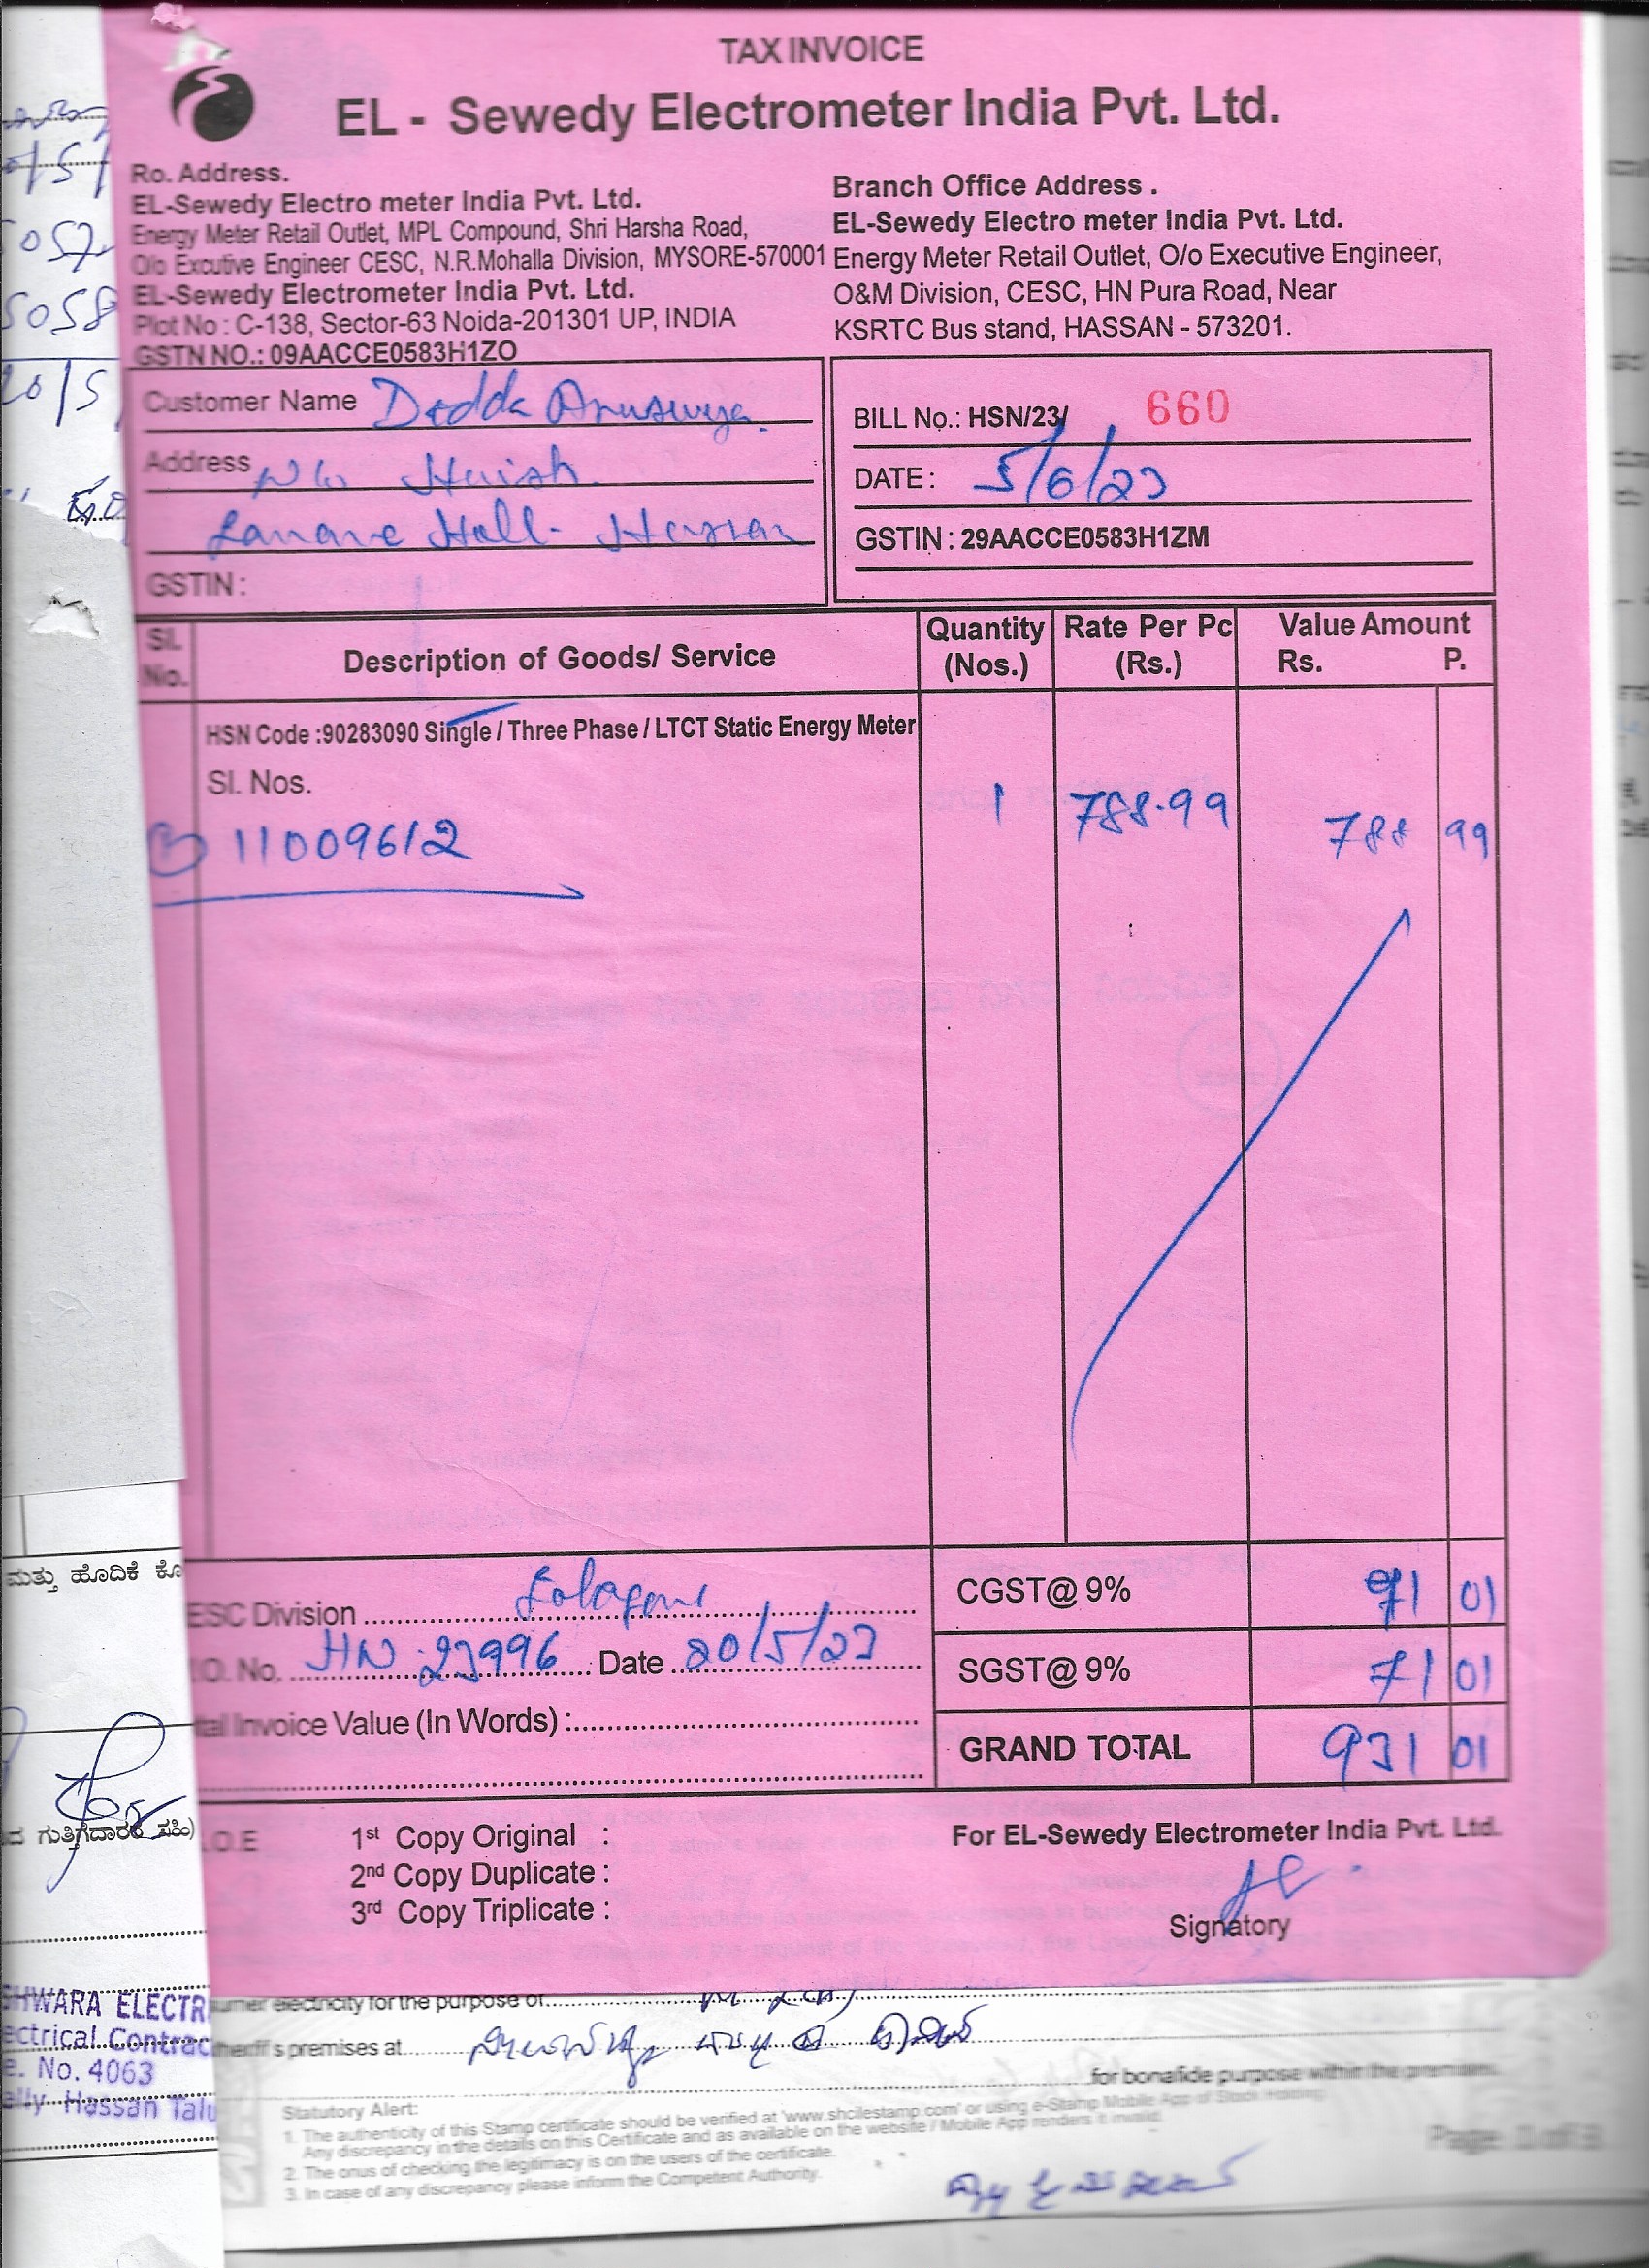 TAX INVOICE
EL - Sewedy Electrometer India Pvt. Ltd.
Ro. Address.
EL-Sewedy Electro meter India Pvt. Ltd.
Energy Meter Retail Outlet, MPL Compound, Shri Harsha Road,
O/o Excutive Engineer CESC, N.R.Mohalla Division, MYSORE-570001
EL-Sewedy Electrometer India Pvt. Ltd.
Plot No : C-138, Sector-63 Noida-201301 UP, INDIA
GSTN NO.: 09AACCE0583H1ZO
Branch Office Address .
EL-Sewedy Electro meter India Pvt. Ltd.
Energy Meter Retail Outlet, O/o Executive Engineer,
O&M Division, CESC, HN Pura Road, Near
KSRTC Bus stand, HASSAN - 573201.
Customer Name Dodda
Address
Hall- Hassan
GSTIN :
BILL No.: HSN/23/ 660
DATE : 5/6/23
GSTIN : 29AACCE0583H1ZM
Sl. No. Description of Goods/ Service Quantity (Nos.) Rate Per Pc (Rs.) Value Amount Rs. P.
HSN Code :90283090 Single / Three Phase / LTCT Static Energy Meter
Sl. Nos.
11009612 1 788.99 788 99
ESC Division
CGST@ 9% 71 01
.O. No. HN 23996 Date 20/5/23
SGST@ 9% 71 01
tal Invoice Value (In Words) :
GRAND TOTAL 931 01
.O.E
1st Copy Original :
2nd Copy Duplicate :
3rd Copy Triplicate :
For EL-Sewedy Electrometer India Pvt. Ltd.
Signatory
0/5/
5057
5058
20/5
ಮತ್ತು ಹೊದಿಕೆ ಕೊ
ದ ಗುತ್ತಿಗೆದಾರರ ಸಹಿ)
SHWARA ELECTR
ectrical Contrac
e. No. 4063
ally Hassan Talu
umer electricity for the purpose of
her/if's premises at
for bonafide purpose within the premises.
Statutory Alert:
1. The authenticity of this Stamp certificate should be verified at 'www.shcilestamp.com' or using e-Stamp Mobile App of Stock Holding
Any discrepancy in the details on this Certificate and as available on the website / Mobile App renders it invalid.
2. The onus of checking the legitimacy is on the users of the certificate.
3. In case of any discrepancy please inform the Competent Authority.